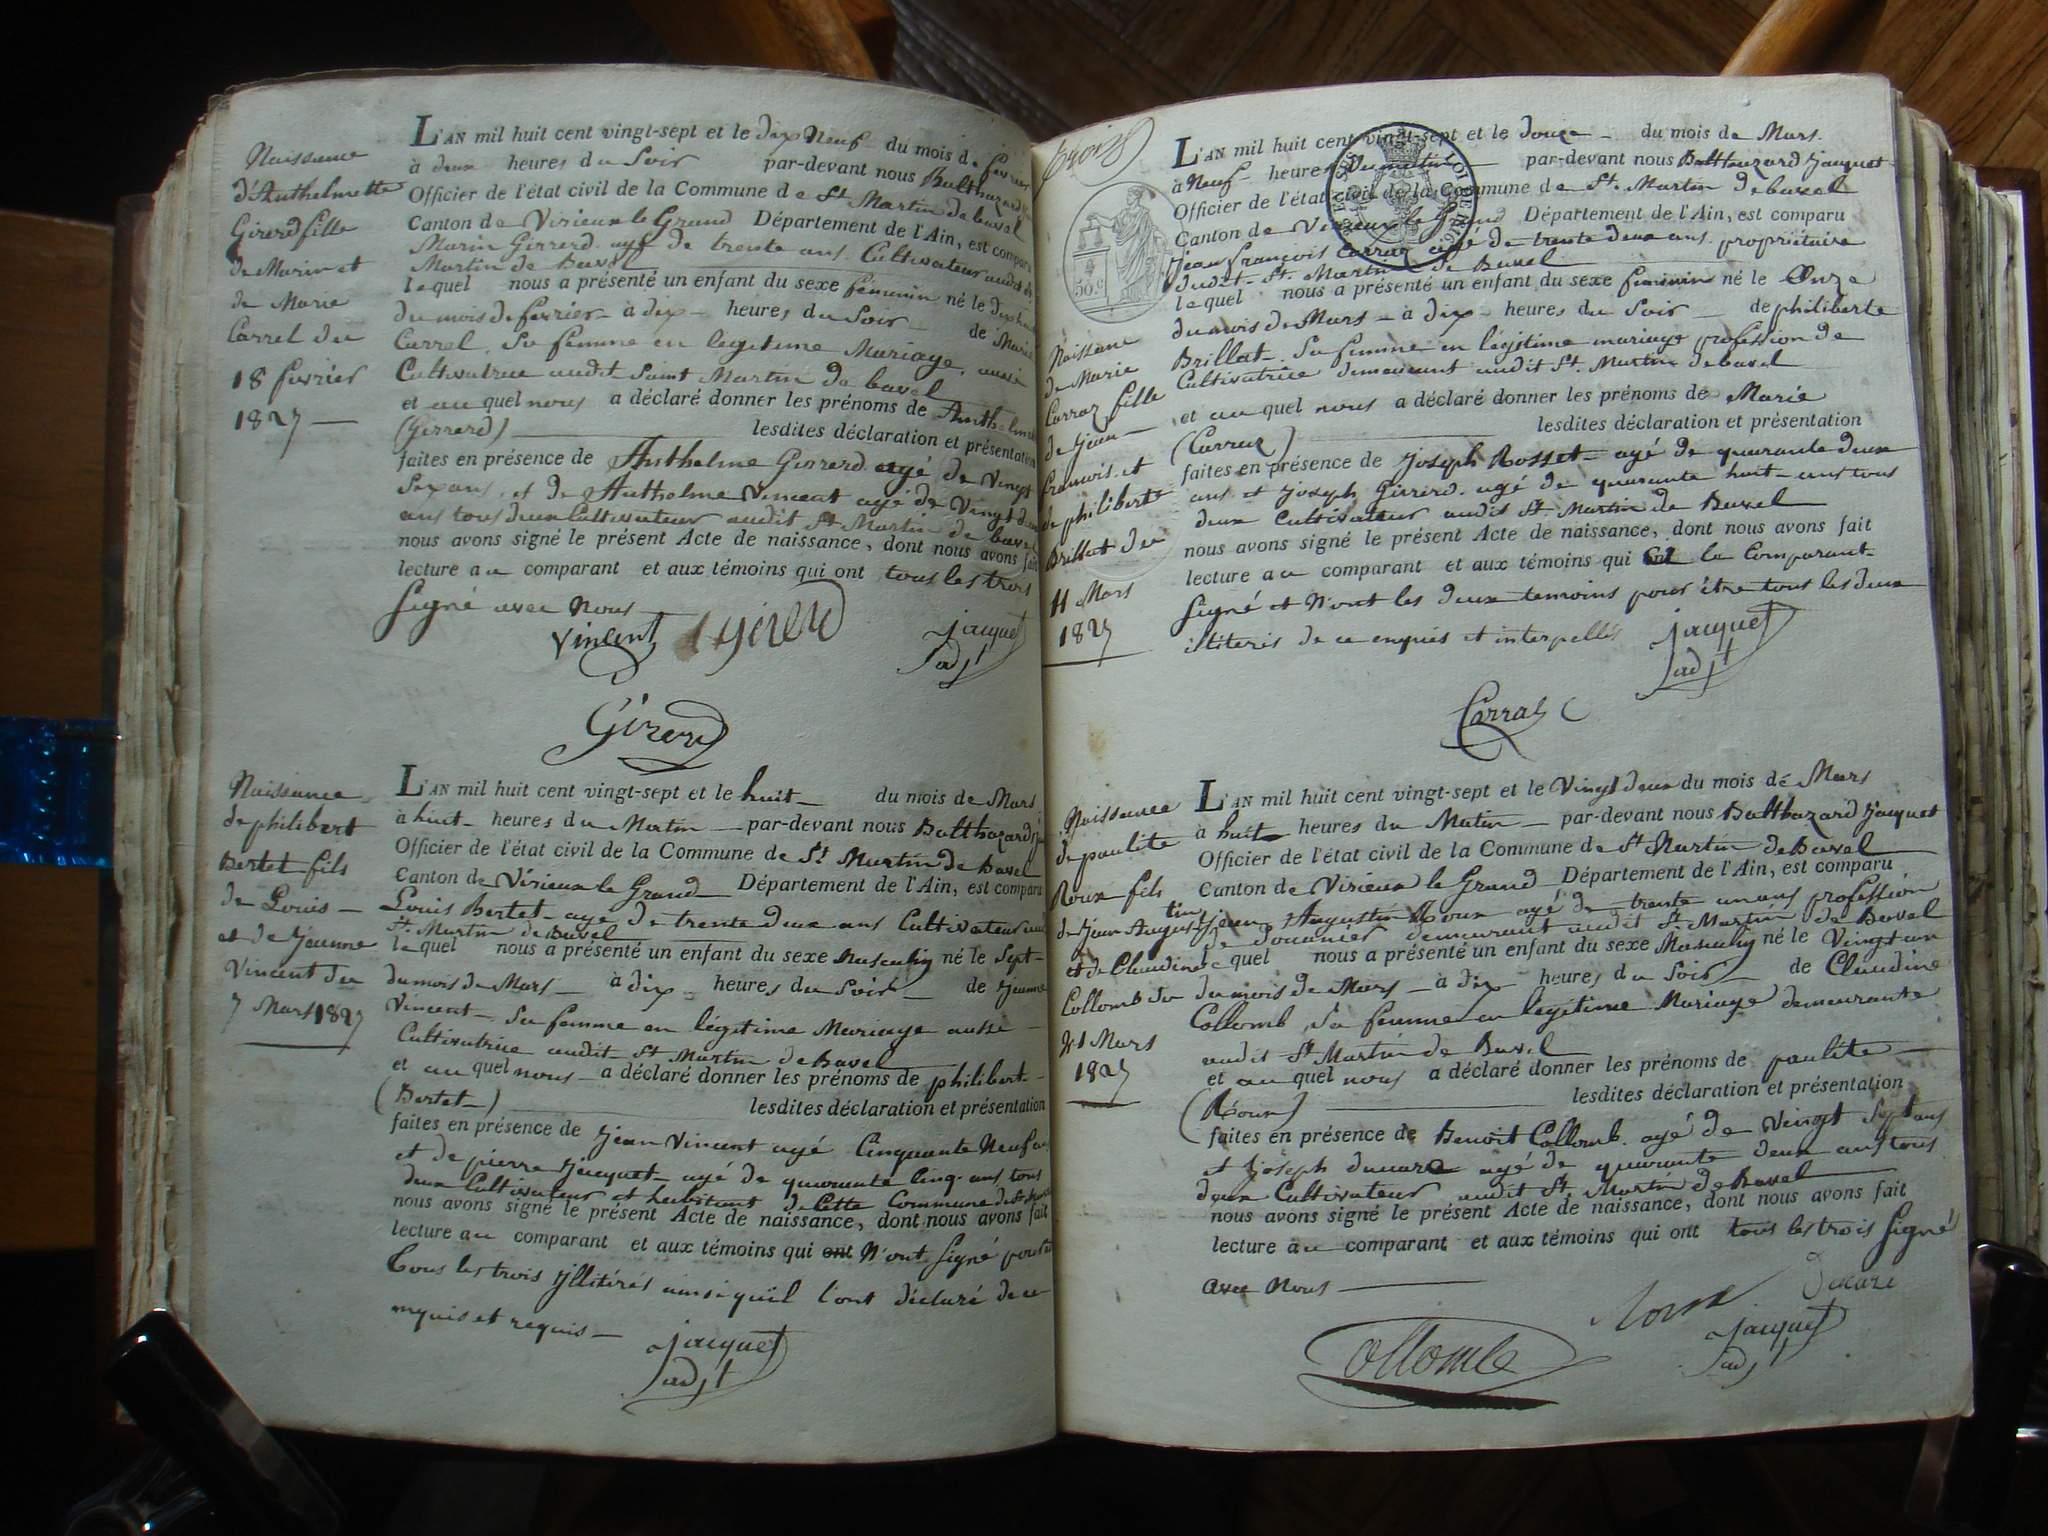 Naissance
d'Anthelmette
Girerd fille
de Marin et
de Marie
Carrel du
18 fevrier
1827
L'AN mil huit cent vingt-sept et le dix Neuf du mois de fevrier
à deux heures du Soir par-devant nous Balthazard
Officier de l'état civil de la Commune de St Martin de bavel
Canton de Virieux le Grand Département de l'Ain, est comparu
Marin Girrerd agé de trente ans Cultivateur audit St
Martin de Bavel
lequel nous a présenté un enfant du sexe féminin né le dix huit
du mois de fevrier à dix heures du Soir de Marie
Carrel, Sa femme en légitime Mariage, aussi
Cultivatrice audit Saint Martin de bavel
et au quel nous a déclaré donner les prénoms de
(Girrerd) lesdites déclaration et présentation
faites en présence de Anthelme Girrerd agé de Vingt
Sept ans, et de Anthelme Vincent agé de Vingt
ans tous deux Cultivateur audit St Martin de bavel
nous avons signé le présent Acte de naissance, dont nous avons fait
lecture au comparant et aux témoins qui ont tous les trois
Signé avec Nous
Vincent Girerd Jacquet
adjt
Girerd
Naissance
de philibert
Bertet fils
de Louis
et de Jeanne
Vincent du
7 Mars 1827
L'AN mil huit cent vingt-sept et le huit du mois de Mars
à huit heures du Matin par-devant nous Balthazard
Officier de l'état civil de la Commune de St Martin de Bavel
Canton de Virieux le Grand Département de l'Ain, est comparu
Louis Bertet agé de trente deux ans Cultivateur audit
St Martin de Bavel
lequel nous a présenté un enfant du sexe Masculin né le Sept
du mois de Mars à dix heures du Soir de Jeanne
Vincent Sa femme en légitime Mariage aussi
Cultivatrice audit St Martin de Bavel
et au quel nous a déclaré donner les prénoms de philibert
(Bertet) lesdites déclaration et présentation
faites en présence de Jean Vincent agé Cinquante Neuf
et de pierre Jacquet agé de quarante Cinq ans, tous
deux Cultivateur et habitant de Cette Commune de St
nous avons signé le présent Acte de naissance, dont nous avons fait
lecture au comparant et aux témoins qui ont N'ont Signé pour
tous les trois Jllitérés ainsi quil l'ont déclaré de ce
enquis et requis
Jacquet
adjt
LOI DE
50.c
Naissance
de Marie
Carraz fille
de Jean
francois et
de philiberte
Brillat du
11 Mars
1827
L'AN mil huit cent vingt-sept et le douze du mois de Mars.
à Neuf heures du matin par-devant nous Balthazard Jacquet
Officier de l'état civil de la Commune de St. Martin de bavel
Canton de Virieux le Grand Département de l'Ain, est comparu
Jean François Carraz agé de trente deux ans propriétaire
dudit St. Martin de Bavel
lequel nous a présenté un enfant du sexe féminin né le Onze
du mois de Mars à dix heures du Soir de philiberte
Brillat Sa femme en légitime mariage profession de
Cultivatrice demeurant audit St. Martin de bavel
et au quel nous a déclaré donner les prénoms de Marie
(Carraz) lesdites déclaration et présentation
faites en présence de Joseph Rosset agé de quarante deux
ans et Joseph Girrerd agé de quarante huit ans tous
deux Cultivateur audit St Martin de Bavel
nous avons signé le présent Acte de naissance, dont nous avons fait
lecture au comparant et aux témoins qui le Comparant
Signé et N'ont les deux temoins pour être tous les deux
de ce enquis et interpellés Jacquet
adjt
Carraz
Naissance
de paulite
Roux fils
de Jean Augustin
et de Claudine
Collomb du
21 Mars
1827
L'AN mil huit cent vingt-sept et le Vingt deux du mois de Mars
à huit heures du Matin par-devant nous Balthazard Jacquet
Officier de l'état civil de la Commune de St Martin de Bavel
Canton de Virieux le Grand Département de l'Ain, est comparu
Jean Augustin Roux agé de trente un ans profession
de douanier demeurant audit St Martin de Bavel
lequel nous a présenté un enfant du sexe Masculin né le Vingt un
du mois de Mars à dix heures du Soir de Claudine
Collomb, Sa femme en légitime Mariage demeurante
audit St Martin de Bavel
et au quel nous a déclaré donner les prénoms de paulite
(Roux) lesdites déclaration et présentation
faites en présence de Benoît Collomb agé de Vingt Sept ans
et Joseph ducare agé de quarante deux ans tous
deux Cultivateur audit St Martin de Bavel
nous avons signé le présent Acte de naissance, dont nous avons fait
lecture au comparant et aux témoins qui ont tous les trois Signé
avec Nous
Roux Ducare
Jacquet
Collomb adjt